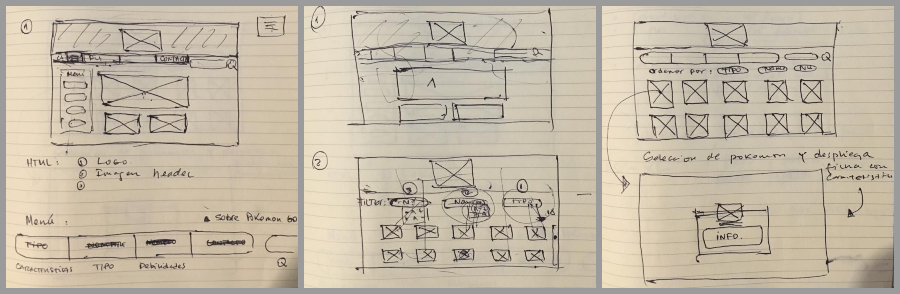 ①
CONTACTO
Q
Menú
HTML: ① LOGO
② Imagen header
③
Menú: Sobre Pokemon GO
TIPO
CONTACTO
CARACTERISTICAS TIPO Debilidades Q
①
Q
1
②
③ ② ①
FILTER: Nº NOMBRE TIPO
Q
ordenar por: TIPO NOMBRE Nº
Seleccion de pokemon y despliega
ficha con
caracteristicas
INFO.